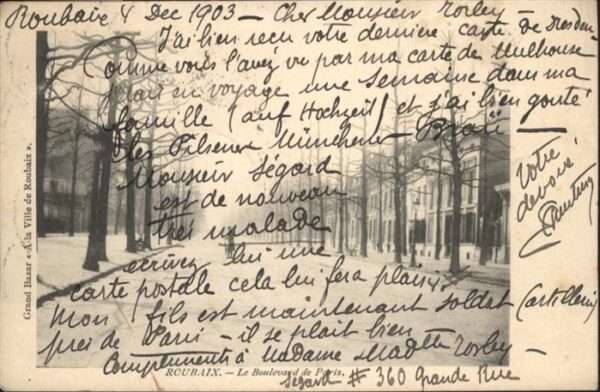 Roubaix 4 Dec 1903 - Cher Monsieur Torley
J'ai bien reçu votre dernière carte de Dresden
Comme vous l'avez vu par ma carte de Mulhouse
j'étais en voyage une semaine dans ma
famille (auf Hochzeit) et j'ai bien gouté
les Pilsener Münchener - Bräu
Monsieur Ségard
est de nouveau
très malade
écrivez lui une
carte postale cela lui fera plaisir.
Mon fils est maintenant soldat (artillerie)
près de Paris - il se plait bien
Compliments à Madame Torley -
Ségard # 360 Grande Rue
Votre
dévoué
Grand Bazar « A la Ville de Roubaix ».
ROUBAIX. - Le Boulevard de Paris.